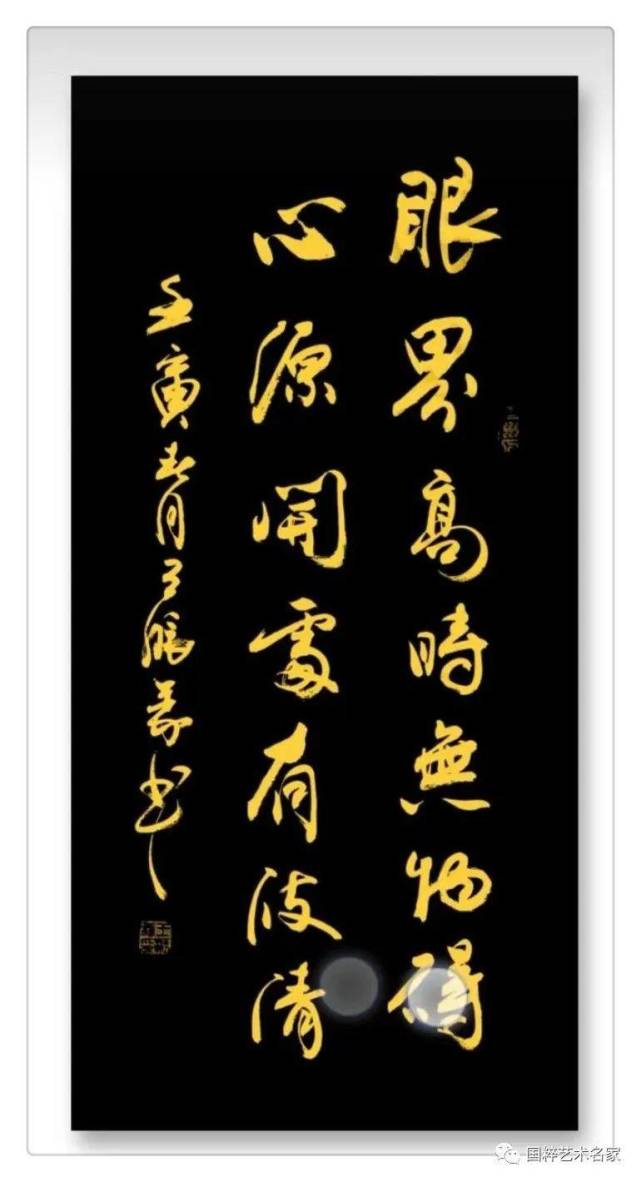 眼界高時無物礙
心源開處有波清
壬寅春月
書
国粹艺术名家